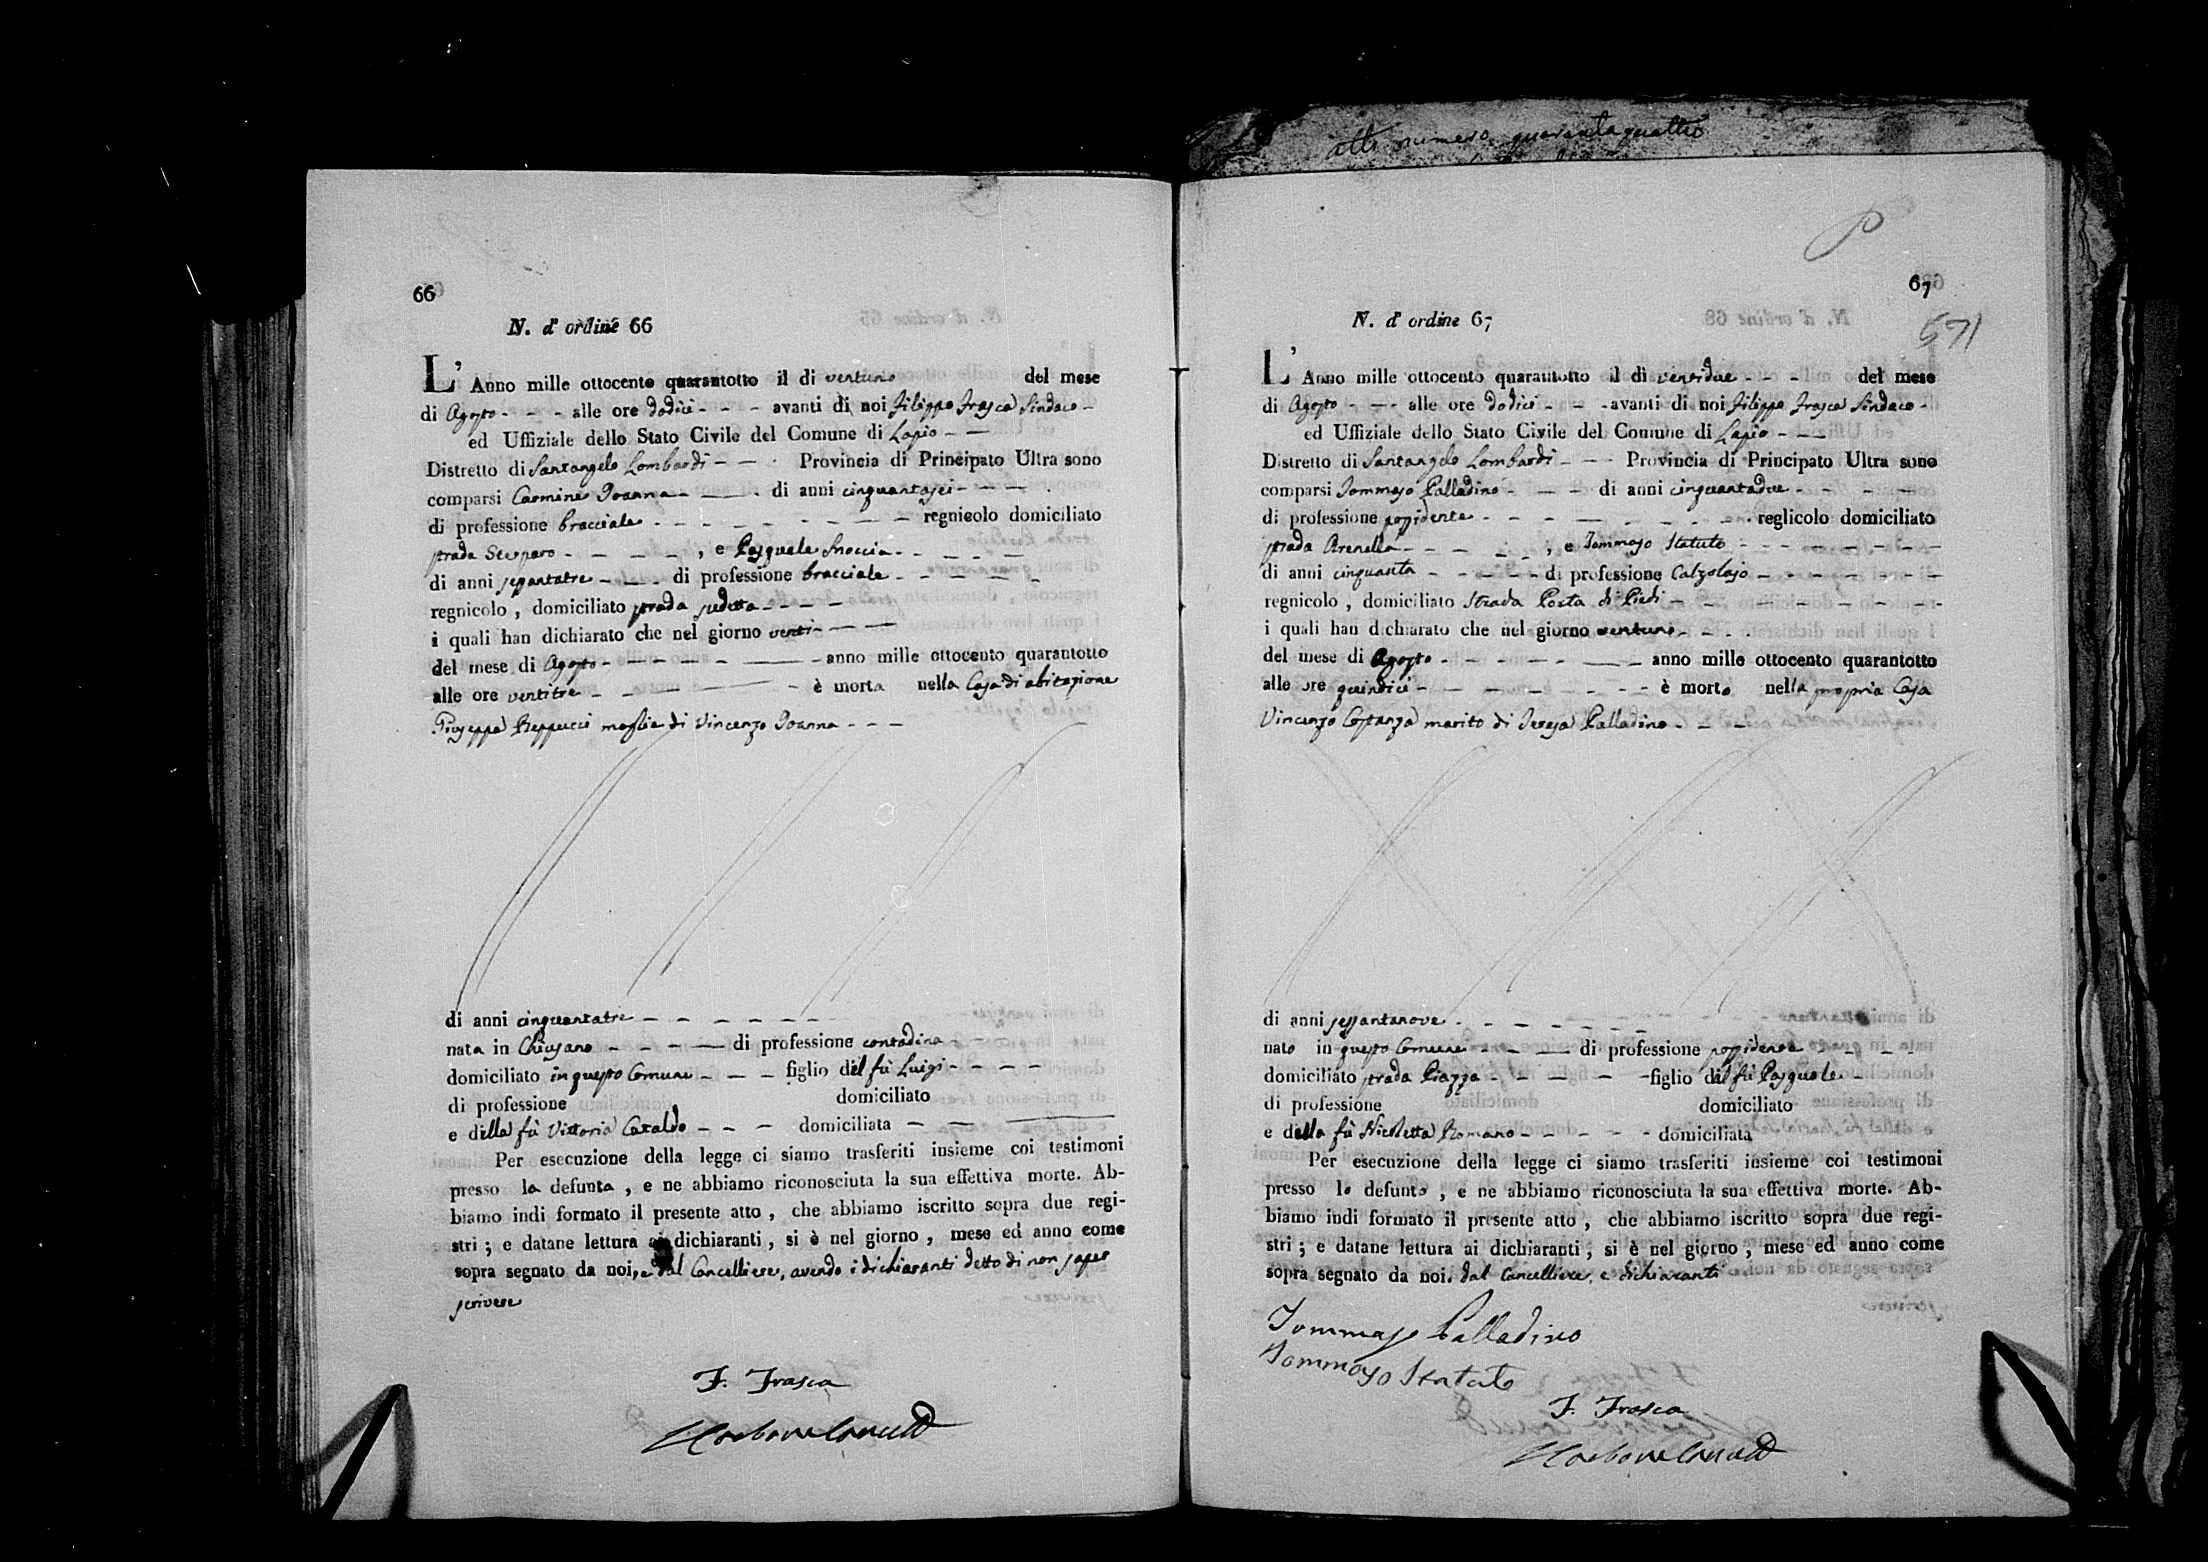 atti numero quarantaquattro
66
N. d' ordine 66
L' Anno mille ottocento quarantotto il di ventuno del mese
di Agosto - - - alle ore dodici - - - avanti di noi Filippo Frasca Sindaco -
ed Uffiziale dello Stato Civile del Comune di Lapio - -
Distretto di Santangelo Lombardi - - - Provincia di Principato Ultra sono
comparsi Carmine Ioanna - - - di anni cinquantasei - - -
di professione bracciale - - - - - - - - - regnicolo domiciliato
strada - - - - - , e Pasquale - - - - -
di anni settantatre - - - di professione bracciale - - - - - -
regnicolo , domiciliato strada sudetta - - - -
i quali han dichiarato che nel giorno venti - - -
del mese di Agosto - - - - - - - anno mille ottocento quarantotto
alle ore ventitre - - - - - è morta nella Casa di abitazione
Giuseppa Reppucci moglie di Vincenzo Ioanna - - -
di anni cinquantatre - - - - - - -
nata in Chiusano - - - - di professione contadina - -
domiciliato in questo Comune - - - figlio del fù Luigi - - - -
di professione domiciliato
e della fù Vittoria Cataldo - - - domiciliata - - -
Per esecuzione della legge ci siamo trasferiti insieme coi testimoni
presso la defunta , e ne abbiamo riconosciuta la sua effettiva morte. Ab-
biamo indi formato il presente atto , che abbiamo iscritto sopra due regi-
stri ; e datane lettura ai dichiaranti , si è nel giorno , mese ed anno come
sopra segnato da noi, e dal Cancelliere, avendo i dichiaranti detto di non saper
scrivere
F. Frasca
67
671
N. d' ordine 67
L' Anno mille ottocento quarantotto il dì ventidue - - - del mese
di Agosto - - - alle ore dodici - - - avanti di noi Filippo Frasca Sindaco -
ed Uffiziale dello Stato Civile del Comune di Lapio - - -
Distretto di Santangelo Lombardi - - - Provincia di Principato Ultra sono
comparsi Tommaso Palladino - - - di anni cinquantadue - - - - -
di professione possidente - - - - - - - - - reglicolo domiciliato
strada Arenella - - - - - - , e Tommaso Statuto - - - - - - -
di anni cinquanta - - - - - di professione Calzolajo - - - - - - -
regnicolo , domiciliato Strada Porta di Piedi - - - - - - - - - -
i quali han dichiarato che nel giorno ventuno - - - -
del mese di Agosto - - - - - - - - anno mille ottocento quarantotto
alle ore quindici - - - - - - - - - è morto nella propria Casa
Vincenzo Costanza marito di Teresa Palladino - - -
di anni sessantanove - - - - - - -
nato in questo Comune - - - di professione possidente - - - - -
domiciliato strada Piazza - - - - - - figlio del fù Pasquale - -
di professione domiciliato
e della fù Nicoletta Romano - - - - - domiciliata
Per esecuzione della legge ci siamo trasferiti insieme coi testimoni
presso lo defunto , e ne abbiamo riconosciuta la sua effettiva morte. Ab-
biamo indi formato il presente atto , che abbiamo iscritto sopra due regi-
stri ; e datane lettura ai dichiaranti , si è nel giorno , mese ed anno come
sopra segnato da noi, dal Cancelliere, e dichiaranti
Tommaso Palladino
Tommaso Statuto
F. Frasca